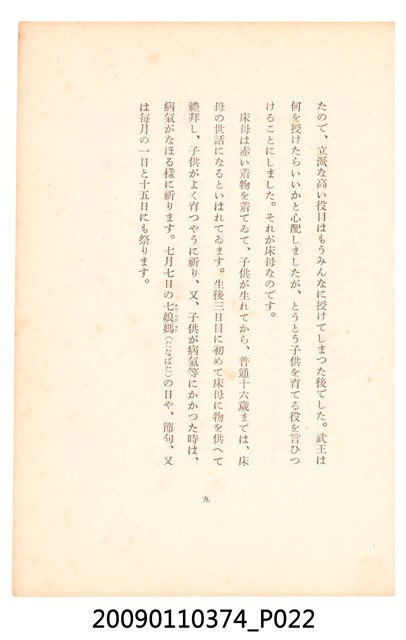 たので、立派な高い役目はもうみんなに授けてしまつた後でした。武王は
何を授けたらいいかと心配しましたが、とうとう子供を育てる役を言ひつ
けることにしました。それが床母なのです。
床母は赤い着物を着てゐて、子供が生れてから、普通十六歳までは、床
母の世話になるといはれてゐます。生後三日目に初めて床母に物を供へて
禮拜し、子供がよく育つやうに祈り、又、子供が病氣等にかかつた時は、
病氣がなほる樣に祈ります。七月七日の七娘媽(たなばた)の日や、節句、又
は每月の一日と十五日にも祭ります。
九
20090110374_P022